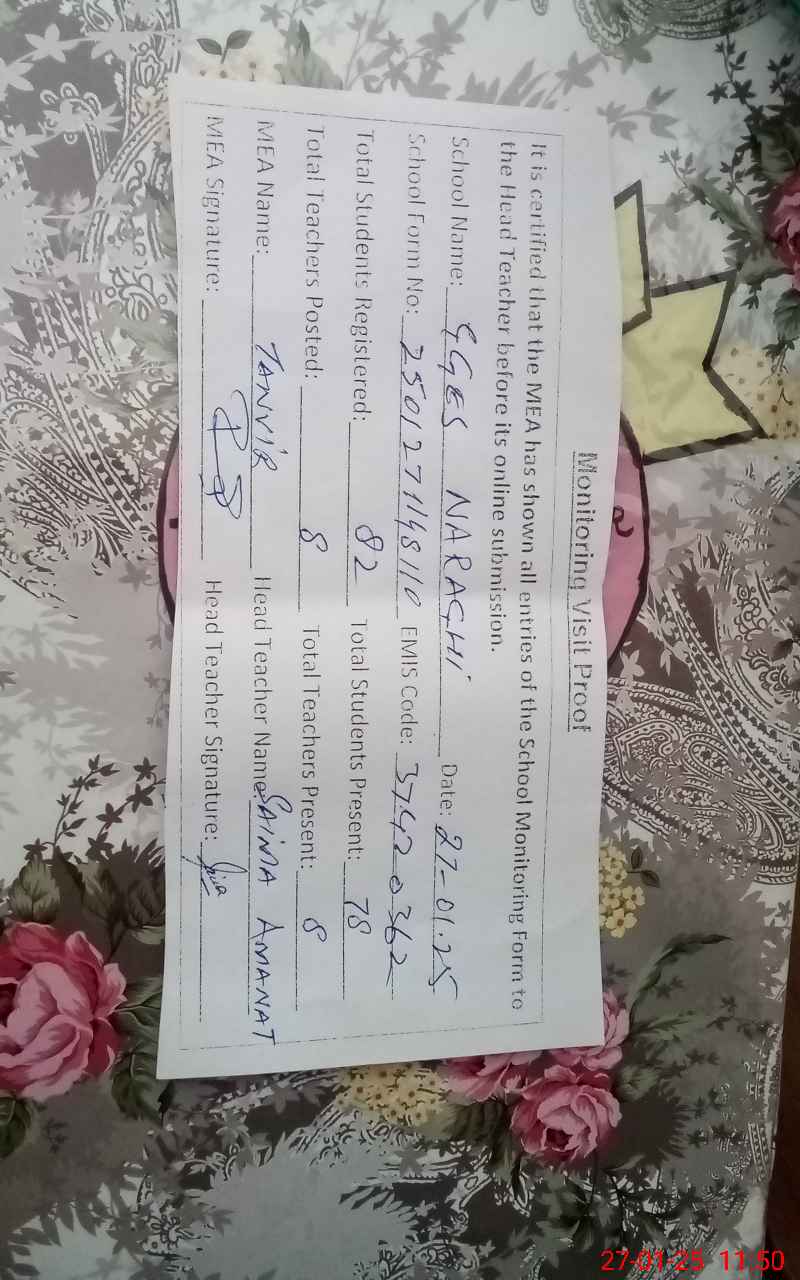 Monitoring Visit Proof
It is certified that the MEA has shown all entries of the School Monitoring Form to
the Head Teacher before its online submission.
School Name: GGES NARAGHI Date: 27-01-25
School Form No: 2501271148110 EMIS Code: 37420362
Total Students Registered: 82 Total Students Present: 78
Total Teachers Posted: 8 Total Teachers Present: 8
MEA Name: TANVIR Head Teacher Name: SAIMA AMANAT
MEA Signature: Head Teacher Signature:
27-01-25 11:50